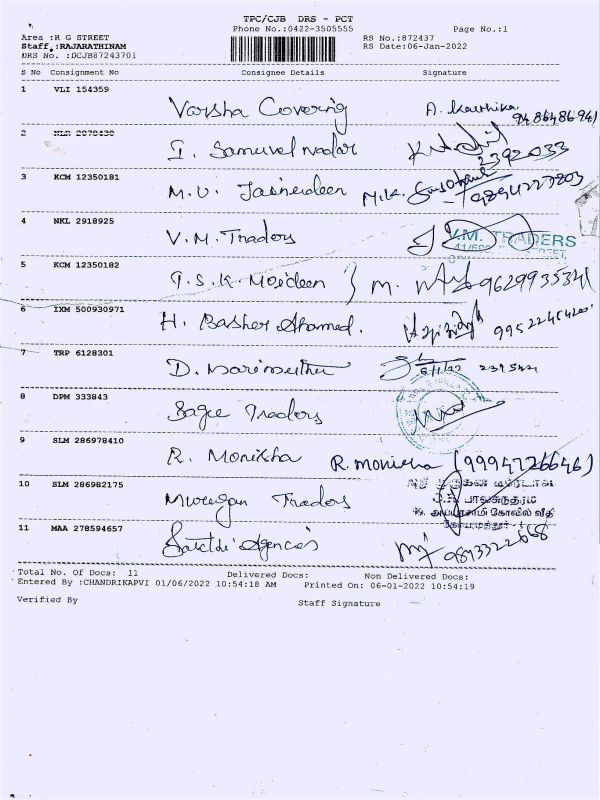 TPC/CJB DRS - PCT
Phone No.:0422-3505555
Page No.:1
Area :R G STREET
RS No.:872437
Staff :RAJARATHINAM
RS Date:06-Jan-2022
DRS No. :DCJB87243701
S No Consignment No Consignee Details Signature
1 VLI 154359
Varsha Covering A. Karthika
9486486941
2 NLB 2078430
I. Samuvel nadar
2392033
3 KCM 12350181
M.U. Jasneideen M.K.
9894227803
4 NKL 2918925
V.M. Traders V.M. TRADERS
5 KCM 12350182
T.S.K. Moideen M. 9629935341
6 IXM 500930971
H. Basher Ahamed.
7 TRP 6128301
D. Marimuthu 6/1/22
8 DPM 333843
Sagee Traders
9 SLM 286978410
R. Monisha R. Monisha (9994726646)
10 SLM 286982175
Murugan Traders
பாலசுந்தரம்
அய்யாசாமி கோவில் வீதி
கோயமுத்தூர் - 1
11 MAA 278594657
Sakthi Agencies 9873322668
Total No. Of Docs: 11 Delivered Docs: Non Delivered Docs:
Entered By :CHANDRIKAPVI 01/06/2022 10:54:18 AM Printed On: 06-01-2022 10:54:19
Verified By Staff Signature